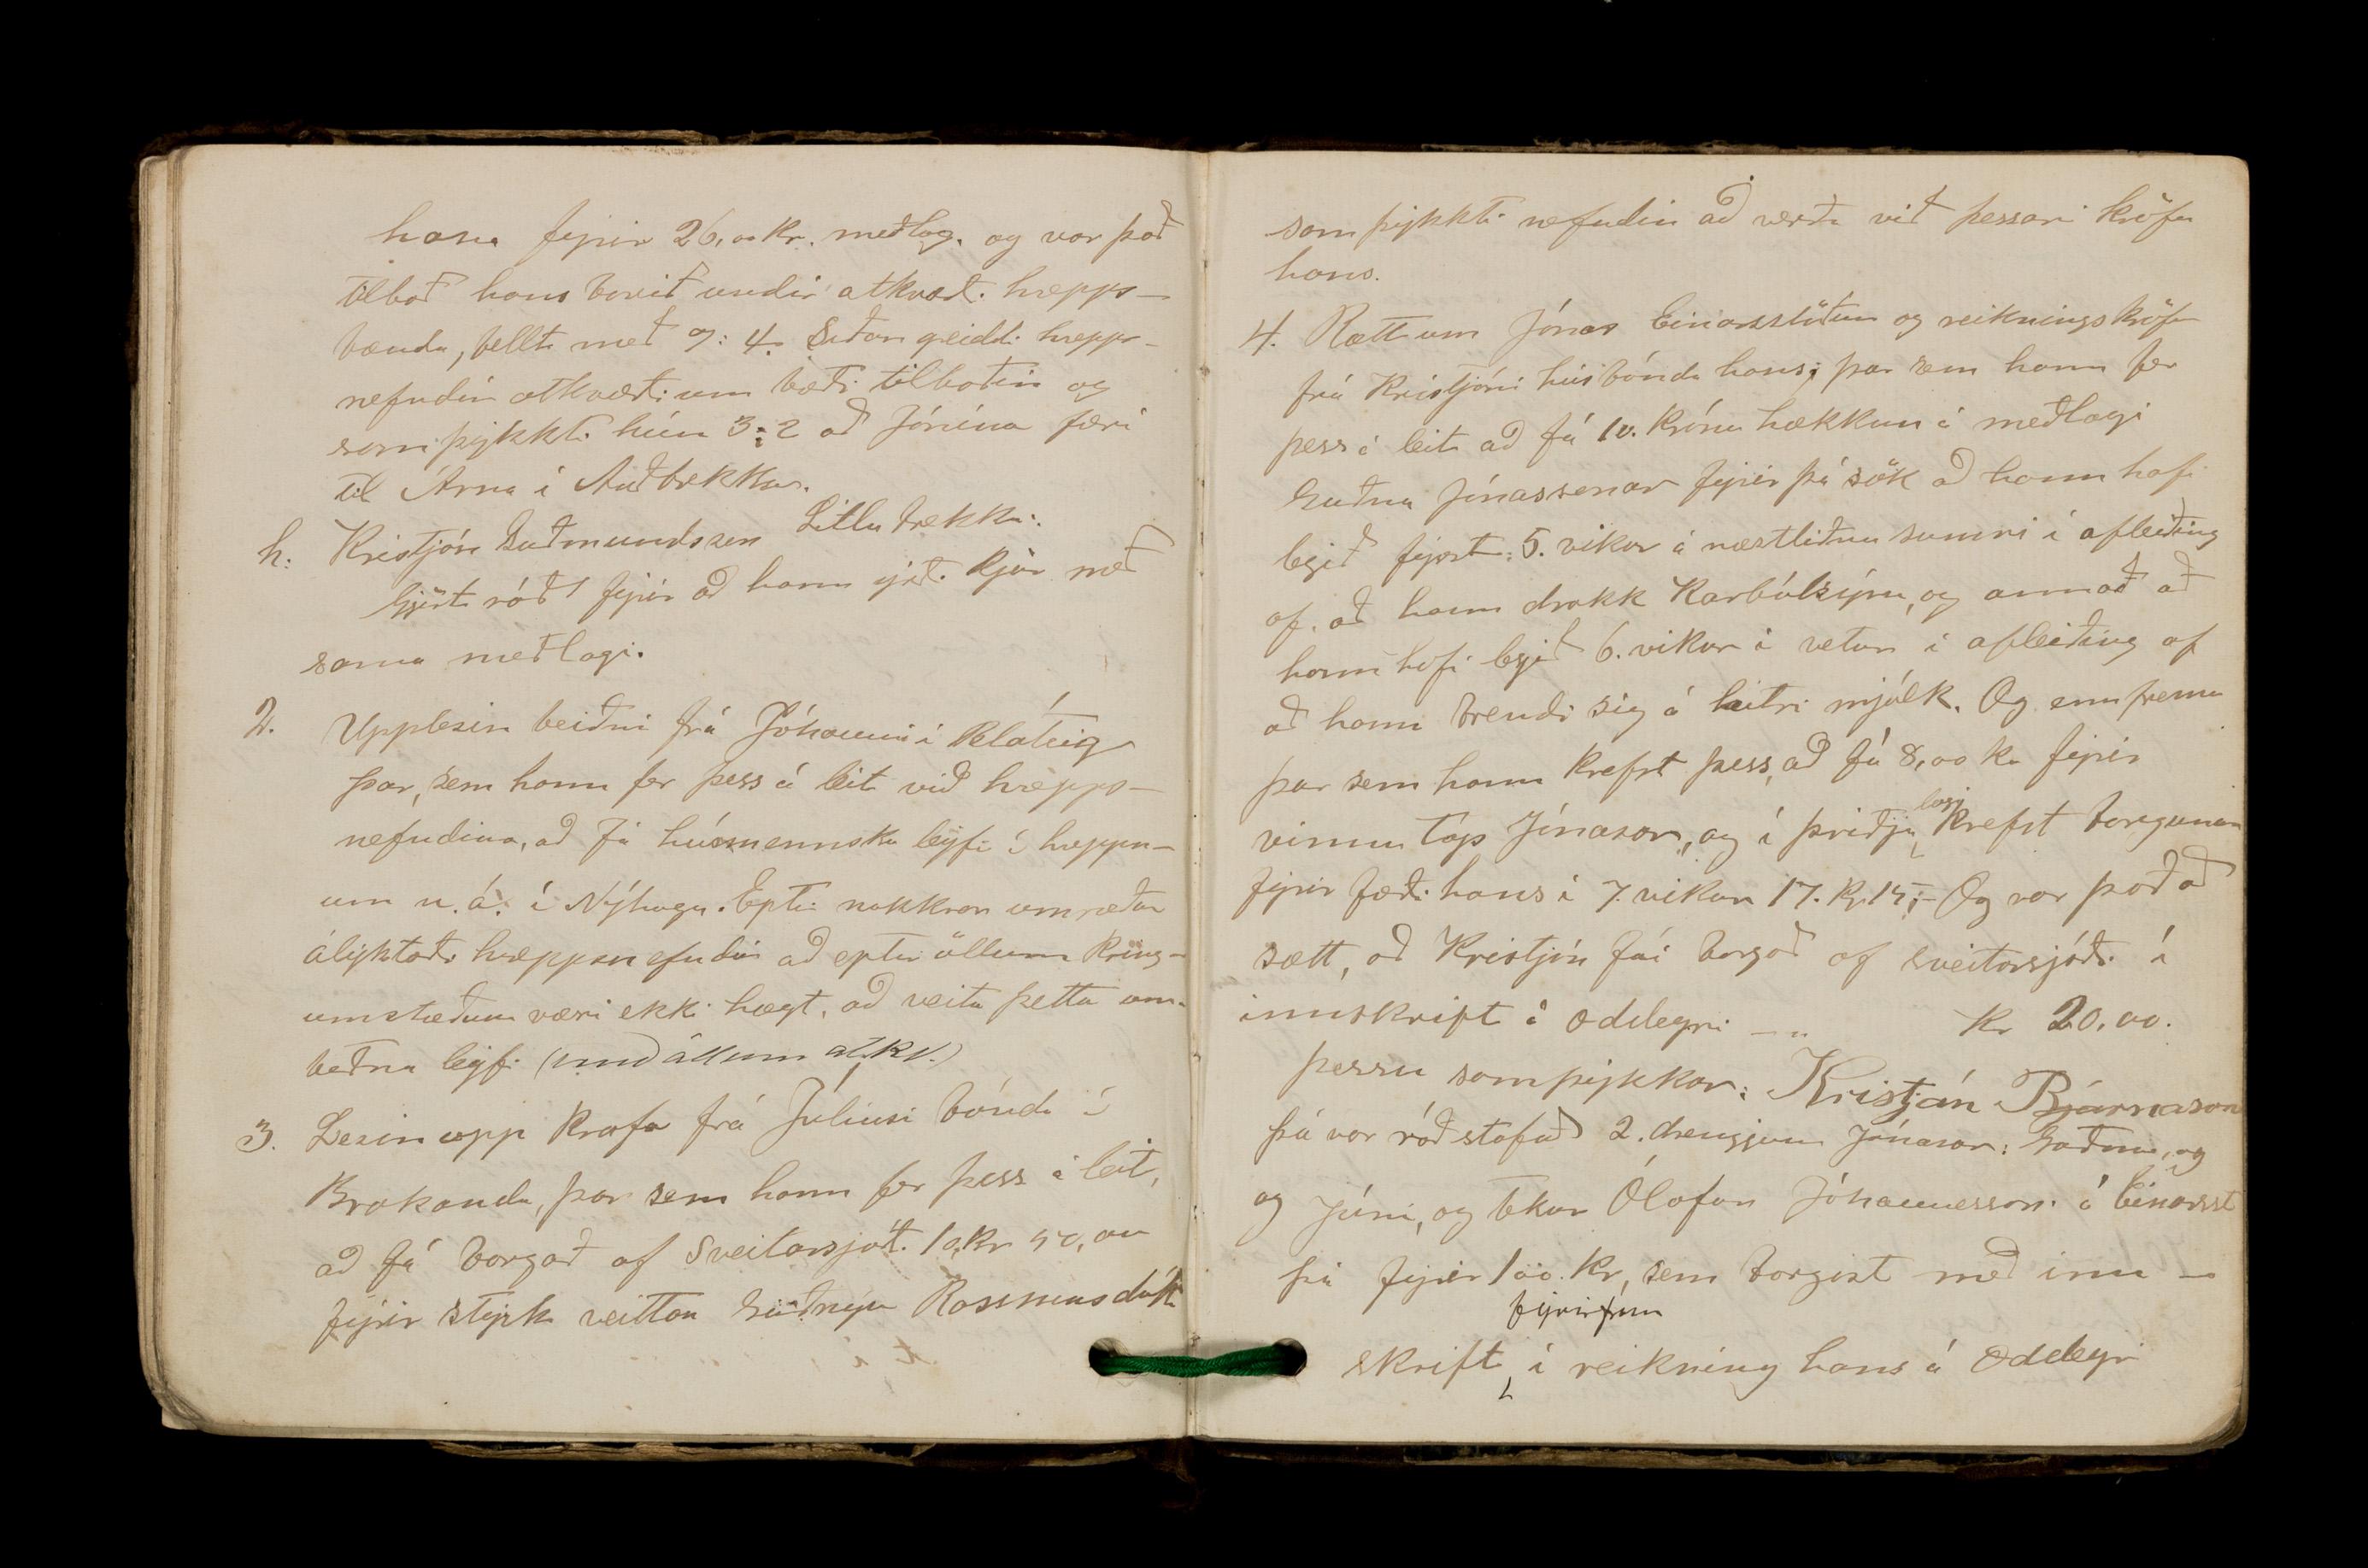 hana fyrir 26,00 Kr. meðlag. og var það
tilboð hans borið undir atkvæði hrepps-
bænda, fellt með 7:4. Síðan greiddi hrepps-
nefndin atkvæði um bæði tilboðin og
samþykkti hún 3:2 að Jónína færi
til Árna í Auðbrekku.
h: Kristján Guðmundssen Litlubrekku.
Gjört ráð fyrir að hann sjéði kjör með
sama meðlagi.
2. Upplesin beiðni frá Jóhanni í Flöguteig
þar, sem hann fer þess á leit við hrepps-
nefndina, að fá húsmennsku leyfi í hreppn-
um n.á. í Nýhaga. Eptir nokkrar umræður
ályktaði hreppsnefndin að eptir öllum kring-
umstæðum væri ekki hægt, að veita þetta um-
beðna leyfi (með öllum atkv.)
3. Lesin upp krafa frá Júlíusi bónda í
Brakanda, þar sem hann fer þess á leit,
að fá borgað af Sveitarsjóði 10,Kr 50,au
fyrir styrk veittan Guðnýu Rassmusdótt
samþykkti nefndin að verða við þessari kröfu
hans.
4. Rætt um Jónas Einarsstöðum og reiknings kröfu
frá Kristjáni húsbónda hans; þar sem hann fer
þess á leit að fá 10. krónu hækkun á meðlagi
Guðna Jónassonar fyrir þá sök að hann hafi
legið fyrst: 5. vikur á næstliðnu sumri í afleiðing
af, að hann drakk Karbólsýru, og annað að
hann hafi legið 6. vikur í vetur í afleiðing af
að hann brendi sig á heitri mjólk. Og enn fremur
þar sem hann krefst þess, að fá 8,00 kr fyrir
vinnu tap Jónasar, og í þriðja lagi krefst borgunar
fyrir fæði hans í 7. vikur 17. Kr 15;- Og var það að
sætt, að Kristján fái borgað af sveitarsjóði í
innskrift á Oddeyri - " Kr 20,00.
þessu samþykkar: Kristján Bjarnason
þá var ráðstafað 2. drengjum Jónasar: Guðna, og
og Jóni, og tekur Ólafur Jóhannesson á Einarsst
þá fyrir 100. Kr, sem borgist með inn -
skrift fyrirfram í reikning hans á Oddeyri